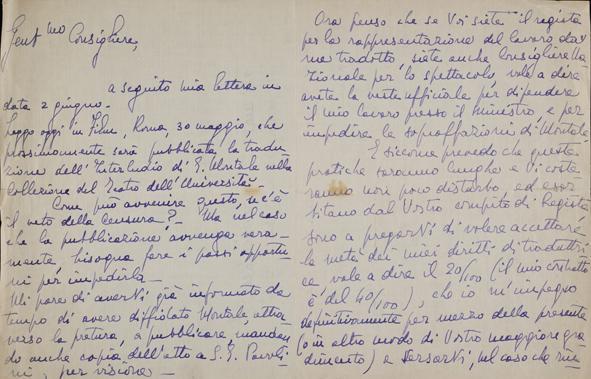 Gent.mo Consigliere,
a seguito mia lettera in
data 2 giugno.
Leggo oggi in Film, Roma, 30 maggio, che
prossimamente sarà pubblicata la tradu-
zione dell'Interludio di E. Montale nella
Collezione del Teatro dell'Università.
Come può avvenire questo, se c'è
il veto della censura? – Ma nel caso
che la pubblicazione avvenga vera-
mente, bisogna fare i passi opportu-
ni per impedirla –
Mi pare di averVi già informato da
tempo di avere diffidato Montale, attra-
verso la pretura, a pubblicare, mandan-
do anche copia dell'atto a S. E. Pavoli-
ni, per visione –
Ora penso che se Voi siete il regista
per la rappresentazione del lavoro da
me tradotto, siete anche Consigliere Na-
zionale per lo spettacolo, vale a dire
avete la veste ufficiale per difendere
il mio lavoro presso il ministro, e per
impedire la sopraffazione di Montale.
E siccome prevedo che queste
pratiche saranno lunghe e Vi coste-
ranno non poco disturbo, ed esor-
bitano dal Vostro compito di Regista
sono a pregarVi di volere accettare
la metà dei miei diritti di traduttri-
ce vale a dire il 20/100 (il mio contratto
è del 40/100), che io m'impegno
definitivamente per mezzo della presente
(o in altro modo di Vostro maggiore gra-
dimento) a versarVi, nel caso che